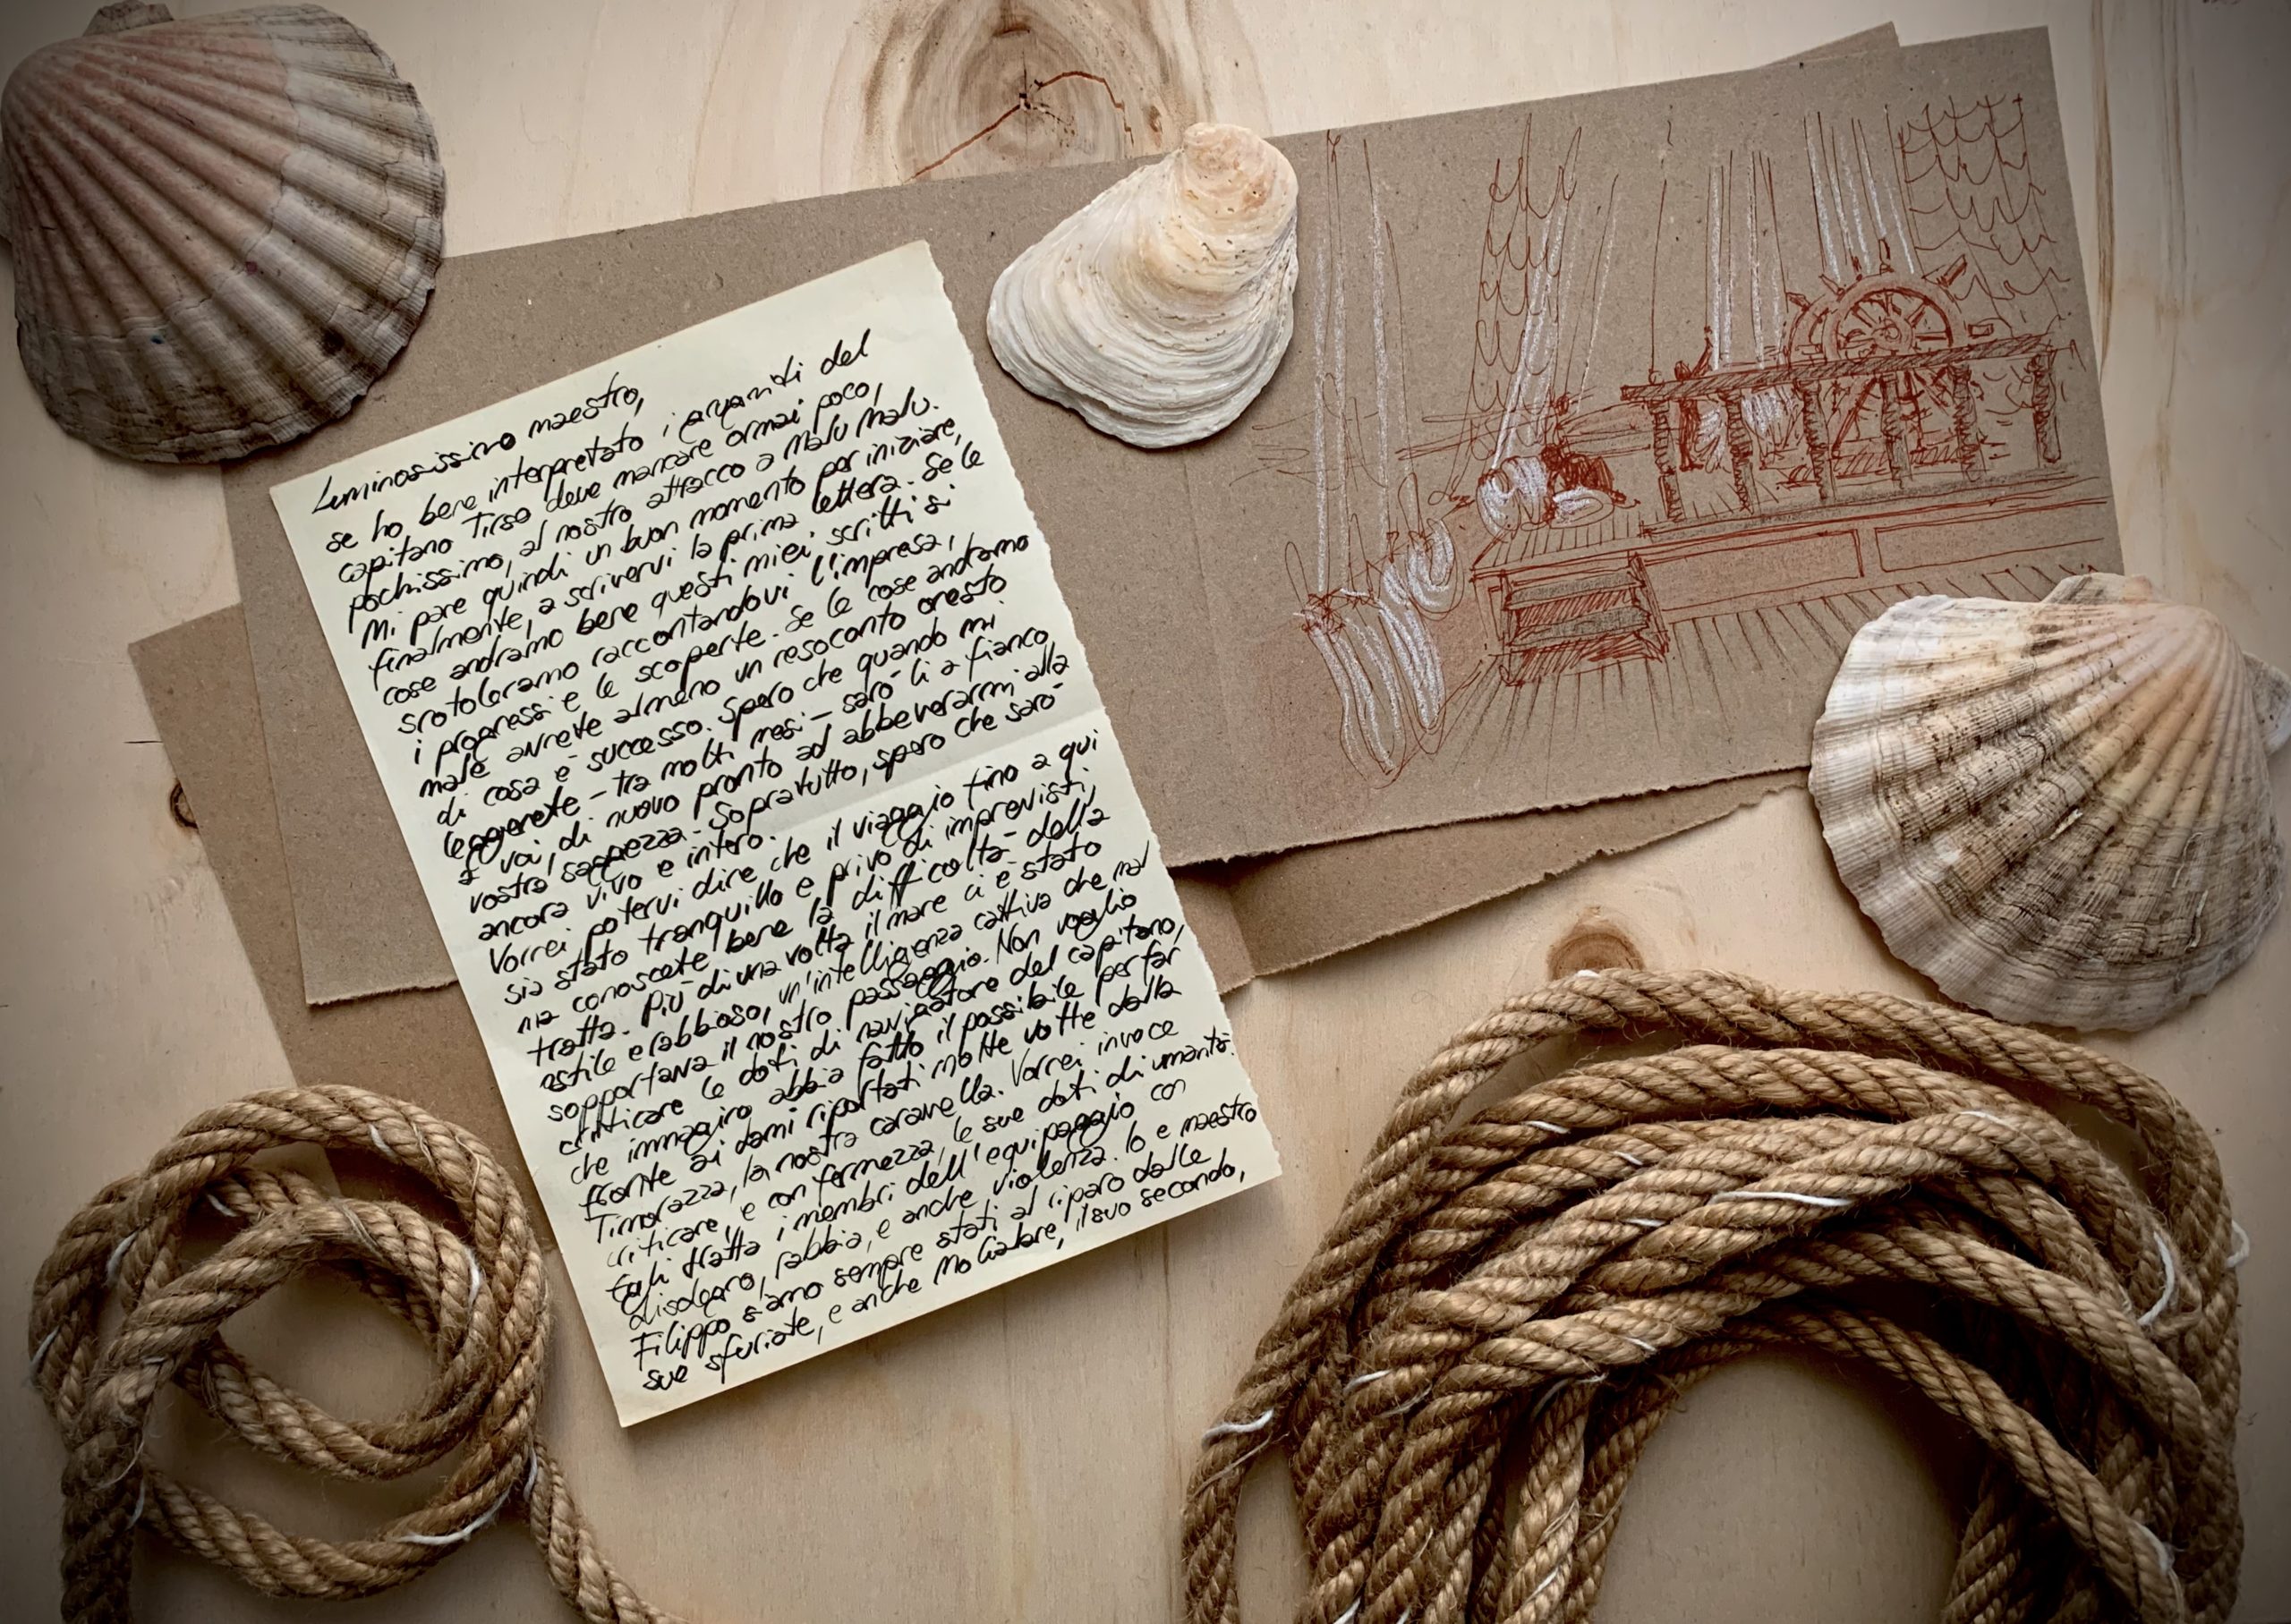 Luminosissimo maestro,
se ho bene interpretato i grugniti del
capitano Tirso deve mancare ormai poco,
pochissimo, al nostro attracco a Malu Malu.
Mi pare quindi un buon momento per iniziare,
finalmente, a scrivervi la prima lettera. Se le
cose andranno bene questi miei scritti si
srotoleranno raccontandovi l'impresa,
i progressi e le scoperte. Se le cose andranno
male avrete almeno un resoconto onesto
di cosa è successo. Spero che quando mi
leggerete - tra molti mesi - sarò lì a fianco
a voi, di nuovo pronto ad abbeverarmi alla
vostra saggezza. Sopratutto, spero che sarò
ancora vivo e intero.
Vorrei potervi dire che il viaggio fino a qui
sia stato tranquillo e privo di imprevisti,
ma conoscete bene la difficoltà della
tratta. Più di una volta il mare ci è stato
ostile e rabbioso, un'intelligenza cattiva che mal
sopportava il nostro passaggio. Non voglio
criticare le doti di navigatore del capitano,
che immagino abbia fatto il possibile per far
fronte ai danni riportati molte volte dalla
Timorazza, la nostra caravella. Vorrei invece
criticare, e con fermezza, le sue doti di umanità.
Egli tratta i membri dell'equipaggio con
disdegno, rabbia, e anche violenza. Io e maestro
Filippo siamo sempre stati al riparo dalle
sue sfuriate, e anche il suo secondo,